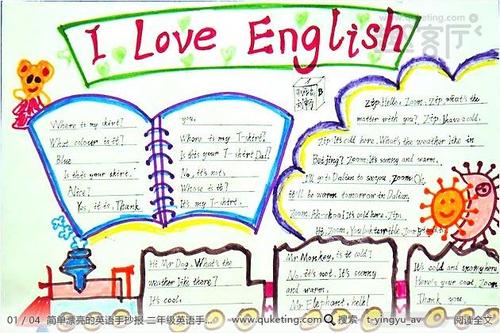 I Love English
Where is my skirt?
What colour is it?
Blue
Is this your skirt.
Alice?
Yes, it is. Thank
you.
Where is my T-shirt?
Is this your T-shirt Dad?
No, it's not.
Whose is it?
It's my T-shirt.
Zip: Hello, Zoom. Zip: What's the
matter with you? Zip: I have a cold.
Zip: It's cold here. What's the weather like in
Beijing? Zoom: It's sunny and warm.
I'll go to Dalian to see you, Zoom: Ok
it'll be warm tomorrow in Dalian.
Zoom: It's cold here, Zip.
Hi, Zoom.
Hi Mr Dog. What's the
weather like there?
It's cool.
Mr Monkey, is it cold?
No, it's not. It's sunny
and warm.
Mr Elephant, hello!
It's cold and snowy here.
Here's your coat, Zoom.
Thank you.
www.quketing.com
客厅
01 / 04 简单漂亮的英语手抄报 二年级英语手...
www.quketing.com 搜索 t-yingyu_av 全文